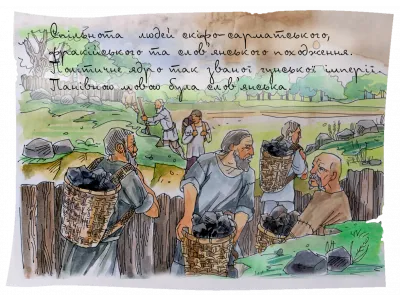 Спільнота людей скіфо-сарматського,
фракійського та слов'янського походження.
Політичне ядро так званої гунської імперії.
Панівною мовою була слов'янська.